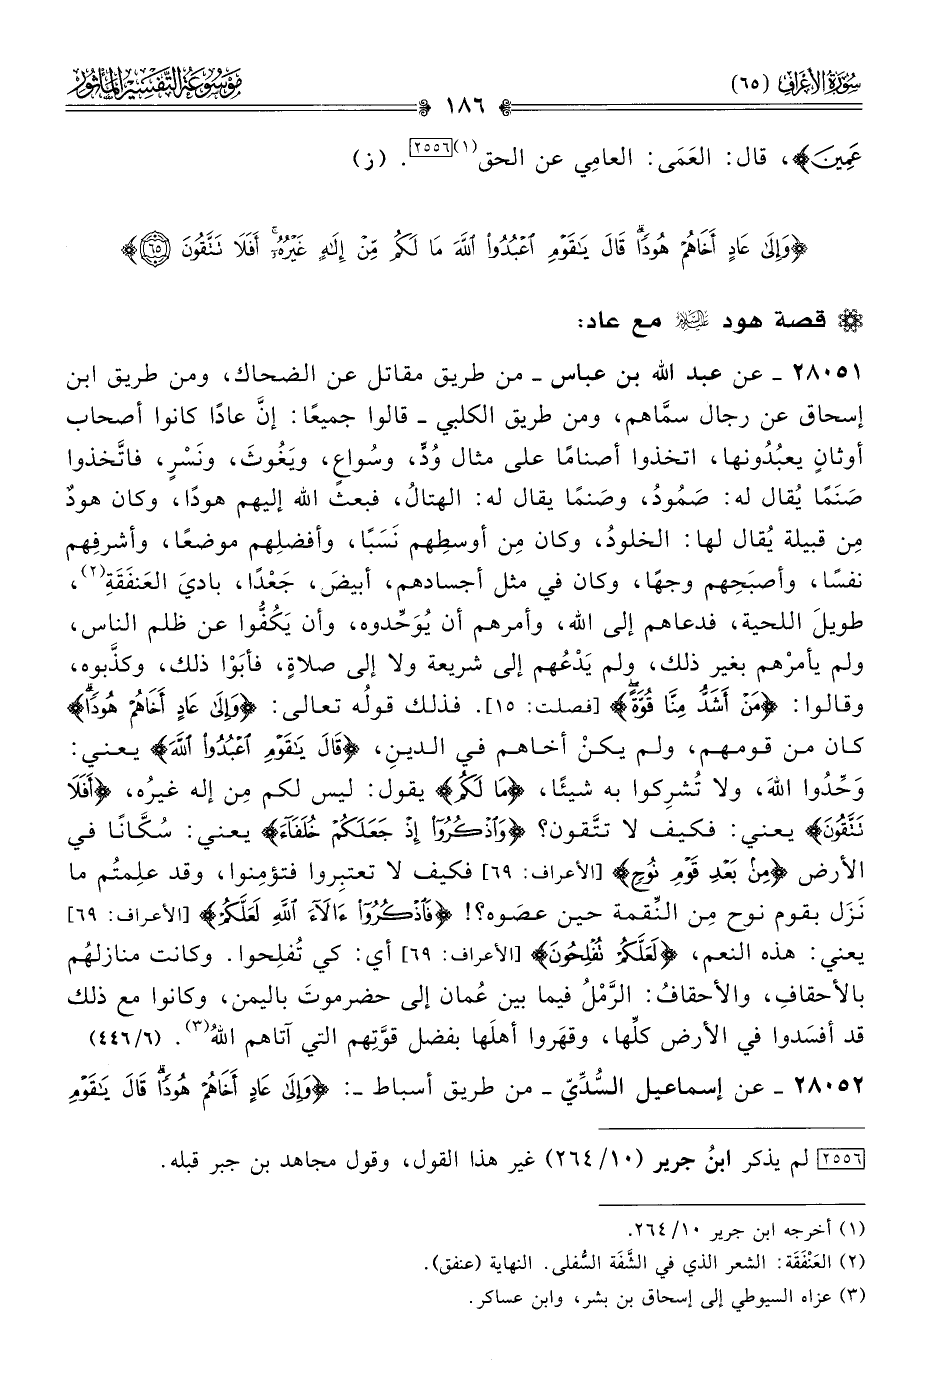 سُورَةُ الأَعْرَافِ (٦٥)
مَوْسُوعَةُ التَّفْسِيرِ المَأْثُورِ
١٨٦
عَمِينَ﴾، قال: العَمَى: العامِي عن الحق(١)[٢٥٥٦]. (ز)
﴿وَإِلَىٰ عَادٍ أَخَاهُمْ هُودًاۗ قَالَ يَٰقَوْمِ ٱعْبُدُوا۟ ٱللَّهَ مَا لَكُم مِّنْ إِلَٰهٍ غَيْرُهُۥٓۚ أَفَلَا تَتَّقُونَ ٦٥﴾
قصة هود عليه السلام مع عاد:
٢٨٠٥١ ـ عن عبد الله بن عباس ـ من طريق مقاتل عن الضحاك، ومن طريق ابن
إسحاق عن رجال سمَّاهم، ومن طريق الكلبي ـ قالوا جميعًا: إنَّ عادًا كانوا أصحاب
أوثانٍ يعبُدُونها، اتخذوا أصنامًا على مثال وُدٍّ، وسُواعٍ، ويَغُوثَ، ونَسْرٍ، فاتَّخذوا
صَنَمًا يُقال له: صَمُودُ، وصنمًا يقال له: الهتالُ، فبعث الله إليهم هودًا، وكان هودٌ
مِن قبيلة يُقال لها: الخلودُ، وكان مِن أوسطِهم نَسَبًا، وأفضلِهم موضعًا، وأشرفِهم
نفسًا، وأصبَحِهم وجهًا، وكان في مثل أجسادهم، أبيضَ، جَعْدًا، باديَ العَنفَقَةِ(٢)،
طويلَ اللحية، فدعاهم إلى الله، وأمرهم أن يُوَحِّدوه، وأن يَكُفُّوا عن ظلم الناس،
ولم يأمرْهم بغير ذلك، ولم يَدْعُهم إلى شريعة ولا إلى صلاةٍ، فأبَوْا ذلك، وكذَّبوه،
وقالوا: ﴿مَنْ أَشَدُّ مِنَّا قُوَّةًۖ﴾ [فصلت: ١٥]. فذلك قولُه تعالى: ﴿وَإِلَىٰ عَادٍ أَخَاهُمْ هُودًاۗ﴾
كان من قومهم، ولم يكنْ أخاهم في الدينِ، ﴿قَالَ يَٰقَوْمِ ٱعْبُدُوا۟ ٱللَّهَ﴾ يعني:
وَحِّدُوا اللهَ، ولا تُشرِكوا به شيئًا، ﴿مَا لَكُم﴾ يقول: ليس لكم مِن إله غيرُه، ﴿أَفَلَا
تَتَّقُونَ﴾ يعني: فكيف لا تتَّقون؟ ﴿وَٱذْكُرُوٓا۟ إِذْ جَعَلَكُمْ خُلَفَآءَ﴾ يعني: سُكَّانًا في
الأرض ﴿مِنۢ بَعْدِ قَوْمِ نُوحٍ﴾ [الأعراف: ٦٩] فكيف لا تعتبِروا فتؤمِنوا، وقد علِمتُم ما
نَزَل بقوم نوح مِن النِّقمة حين عصَوه؟! ﴿فَٱذْكُرُوٓا۟ ءَالَآءَ ٱللَّهِ لَعَلَّكُمْ﴾ [الأعراف: ٦٩]
يعني: هذه النعم، ﴿لَعَلَّكُمْ تُفْلِحُونَ﴾ [الأعراف: ٦٩] أي: كي تُفلِحوا. وكانت منازلهُم
بالأحقافِ، والأحقافُ: الرَّمْلُ فيما بين عُمان إلى حضرموتَ باليمن، وكانوا مع ذلك
قد أفسَدوا في الأرض كلِّها، وقهَروا أهلَها بفضل قوَّتِهم التي آتاهم اللهُ(٣). (٤٤٦/٦)
٢٨٠٥٢ ـ عن إسماعيل السُّدِّيّ ـ من طريق أسباط ـ: ﴿وَإِلَىٰ عَادٍ أَخَاهُمْ هُودًاۗ قَالَ يَٰقَوْمِ
[٢٥٥٦] لم يذكر ابنُ جرير (٢٦٤/١٠) غير هذا القول، وقول مجاهد بن جبر قبله.
(١) أخرجه ابن جرير ٢٦٤/١٠.
(٢) العَنْفَقَة: الشعر الذي في الشَّفَة السُّفلى. النهاية (عنفق).
(٣) عزاه السيوطي إلى إسحاق بن بشر، وابن عساكر.